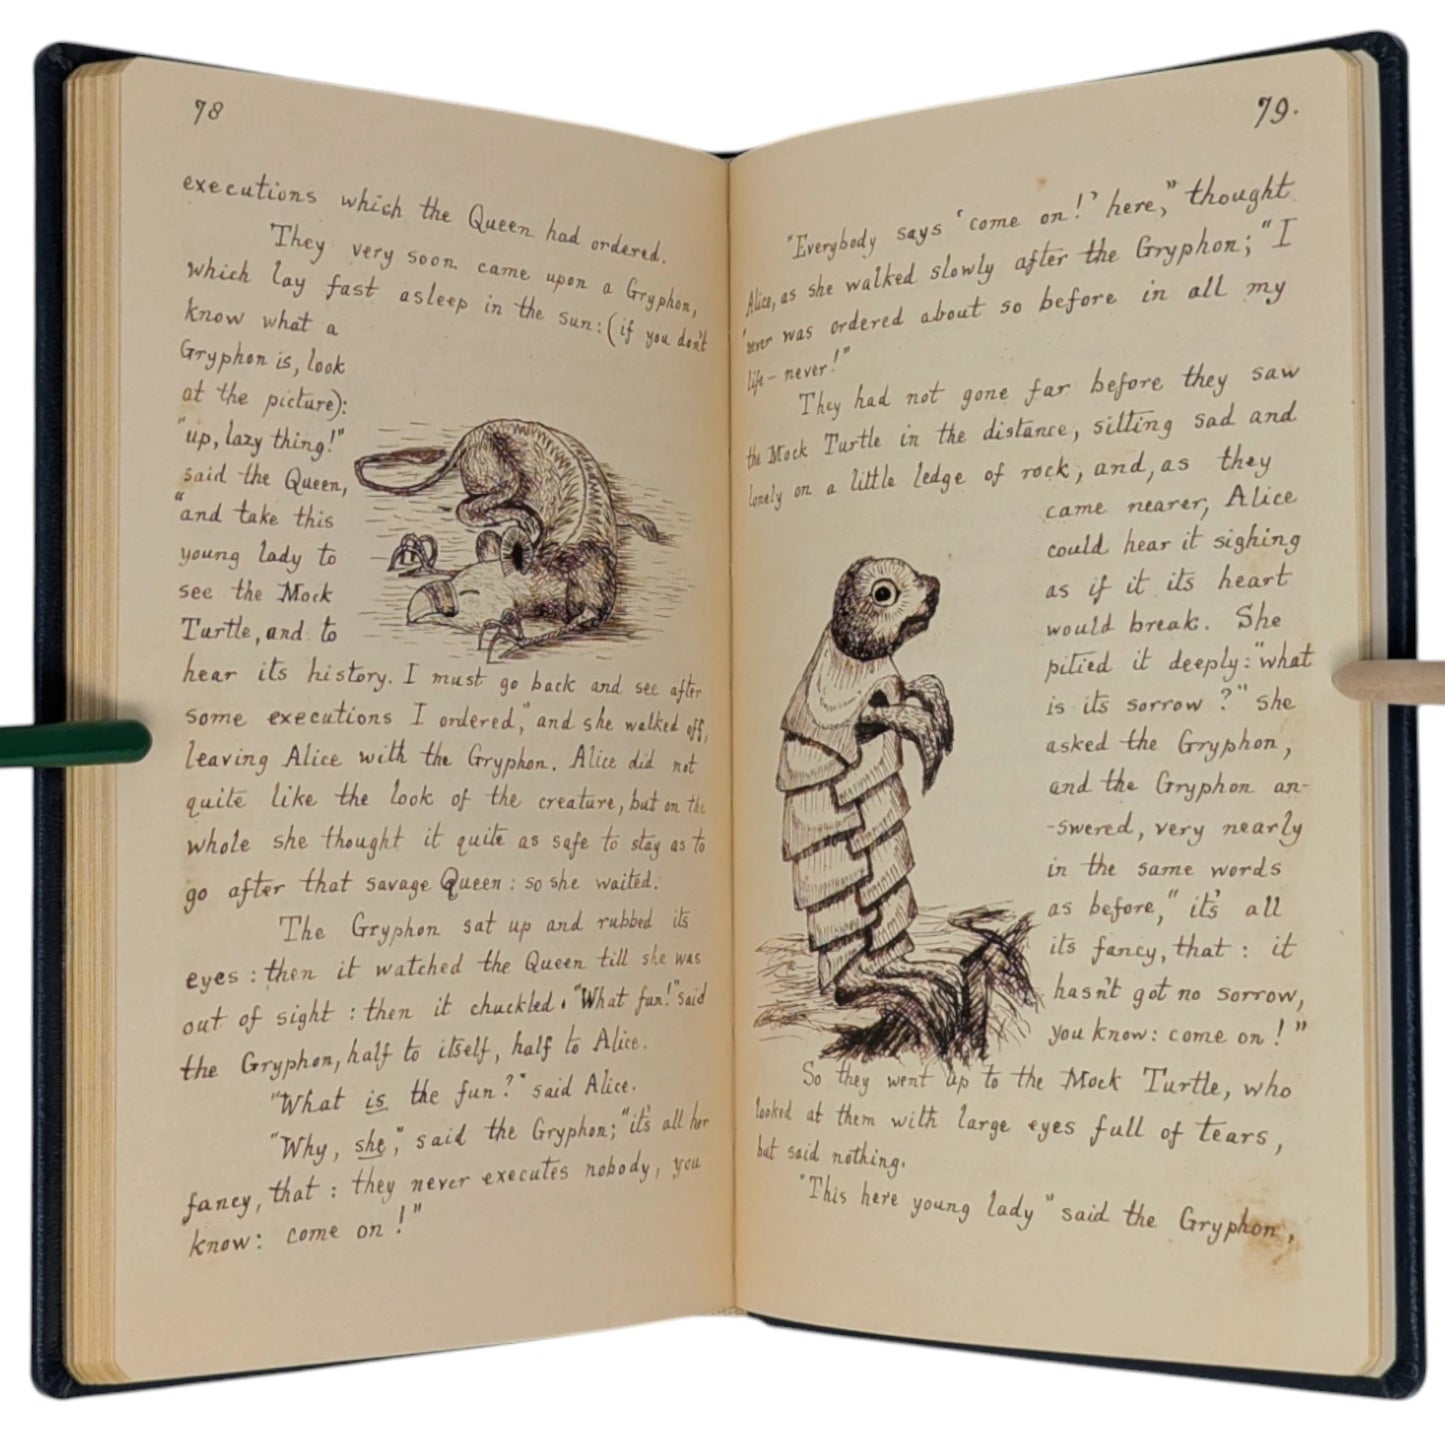 78
executions which the Queen had ordered.
They very soon came upon a Gryphon,
which lay fast asleep in the sun: (if you don't
know what a
Gryphon is, look
at the picture):
"up, lazy thing!"
said the Queen,
"and take this
young lady to
see the Mock
Turtle, and to
hear its history. I must go back and see after
some executions I ordered," and she walked off,
leaving Alice with the Gryphon. Alice did not
quite like the look of the creature, but on the
whole she thought it quite as safe to stay as to
go after that savage Queen: so she waited.
The Gryphon sat up and rubbed its
eyes: then it watched the Queen till she was
out of sight: then it chuckled. "What fun!" said
the Gryphon, half to itself, half to Alice.
"What is the fun?" said Alice.
"Why, she," said the Gryphon; "it's all her
fancy, that: they never executes nobody, you
know: come on!"
79.
"Everybody says 'come on!' here," thought
Alice, as she walked slowly after the Gryphon; "I
never was ordered about so before in all my
life - never!"
They had not gone far before they saw
the Mock Turtle in the distance, sitting sad and
lonely on a little ledge of rock, and, as they
came nearer, Alice
could hear it sighing
as if it its heart
would break. She
pitied it deeply: "what
is its sorrow?" she
asked the Gryphon,
and the Gryphon an-
-swered, very nearly
in the same words
as before, "it's all
its fancy, that: it
hasn't got no sorrow,
you know: come on!"
So they went up to the Mock Turtle, who
looked at them with large eyes full of tears,
but said nothing.
"This here young lady" said the Gryphon,